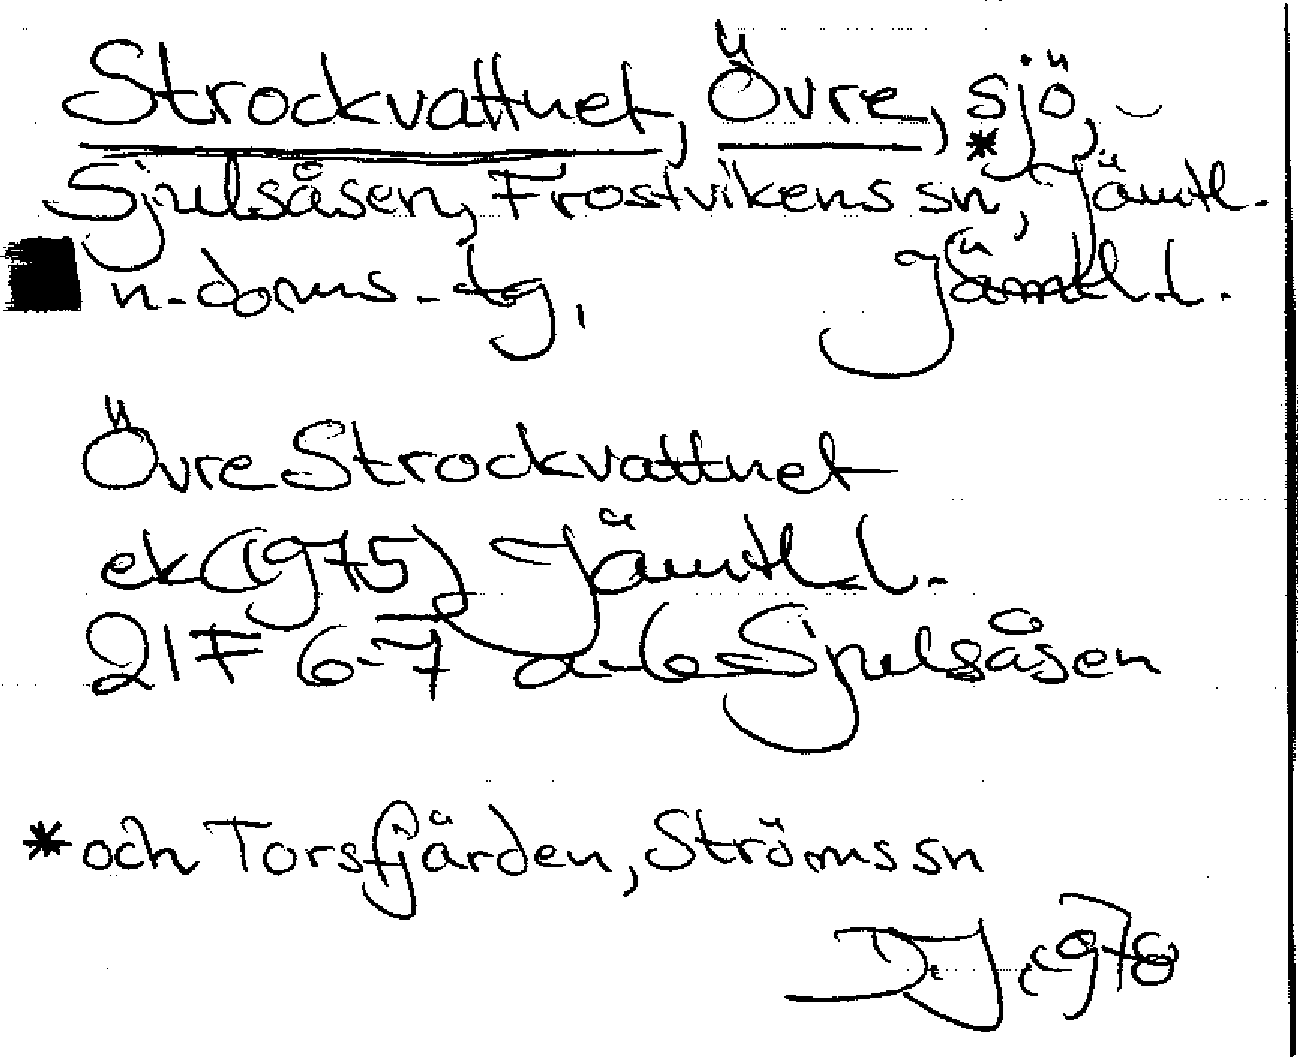 Strockvattnet, Övre, sjö,
Sjulsåsen, Frostvikens sn, Jämtl.
n. doms. tg, Jämtl. l.
Övre Strockvattnet
ek (1975) Jämtl. l.
21F 6-7 a-b Sjulsåsen
* och Torsfjärden, Ströms sn
DJ 1978